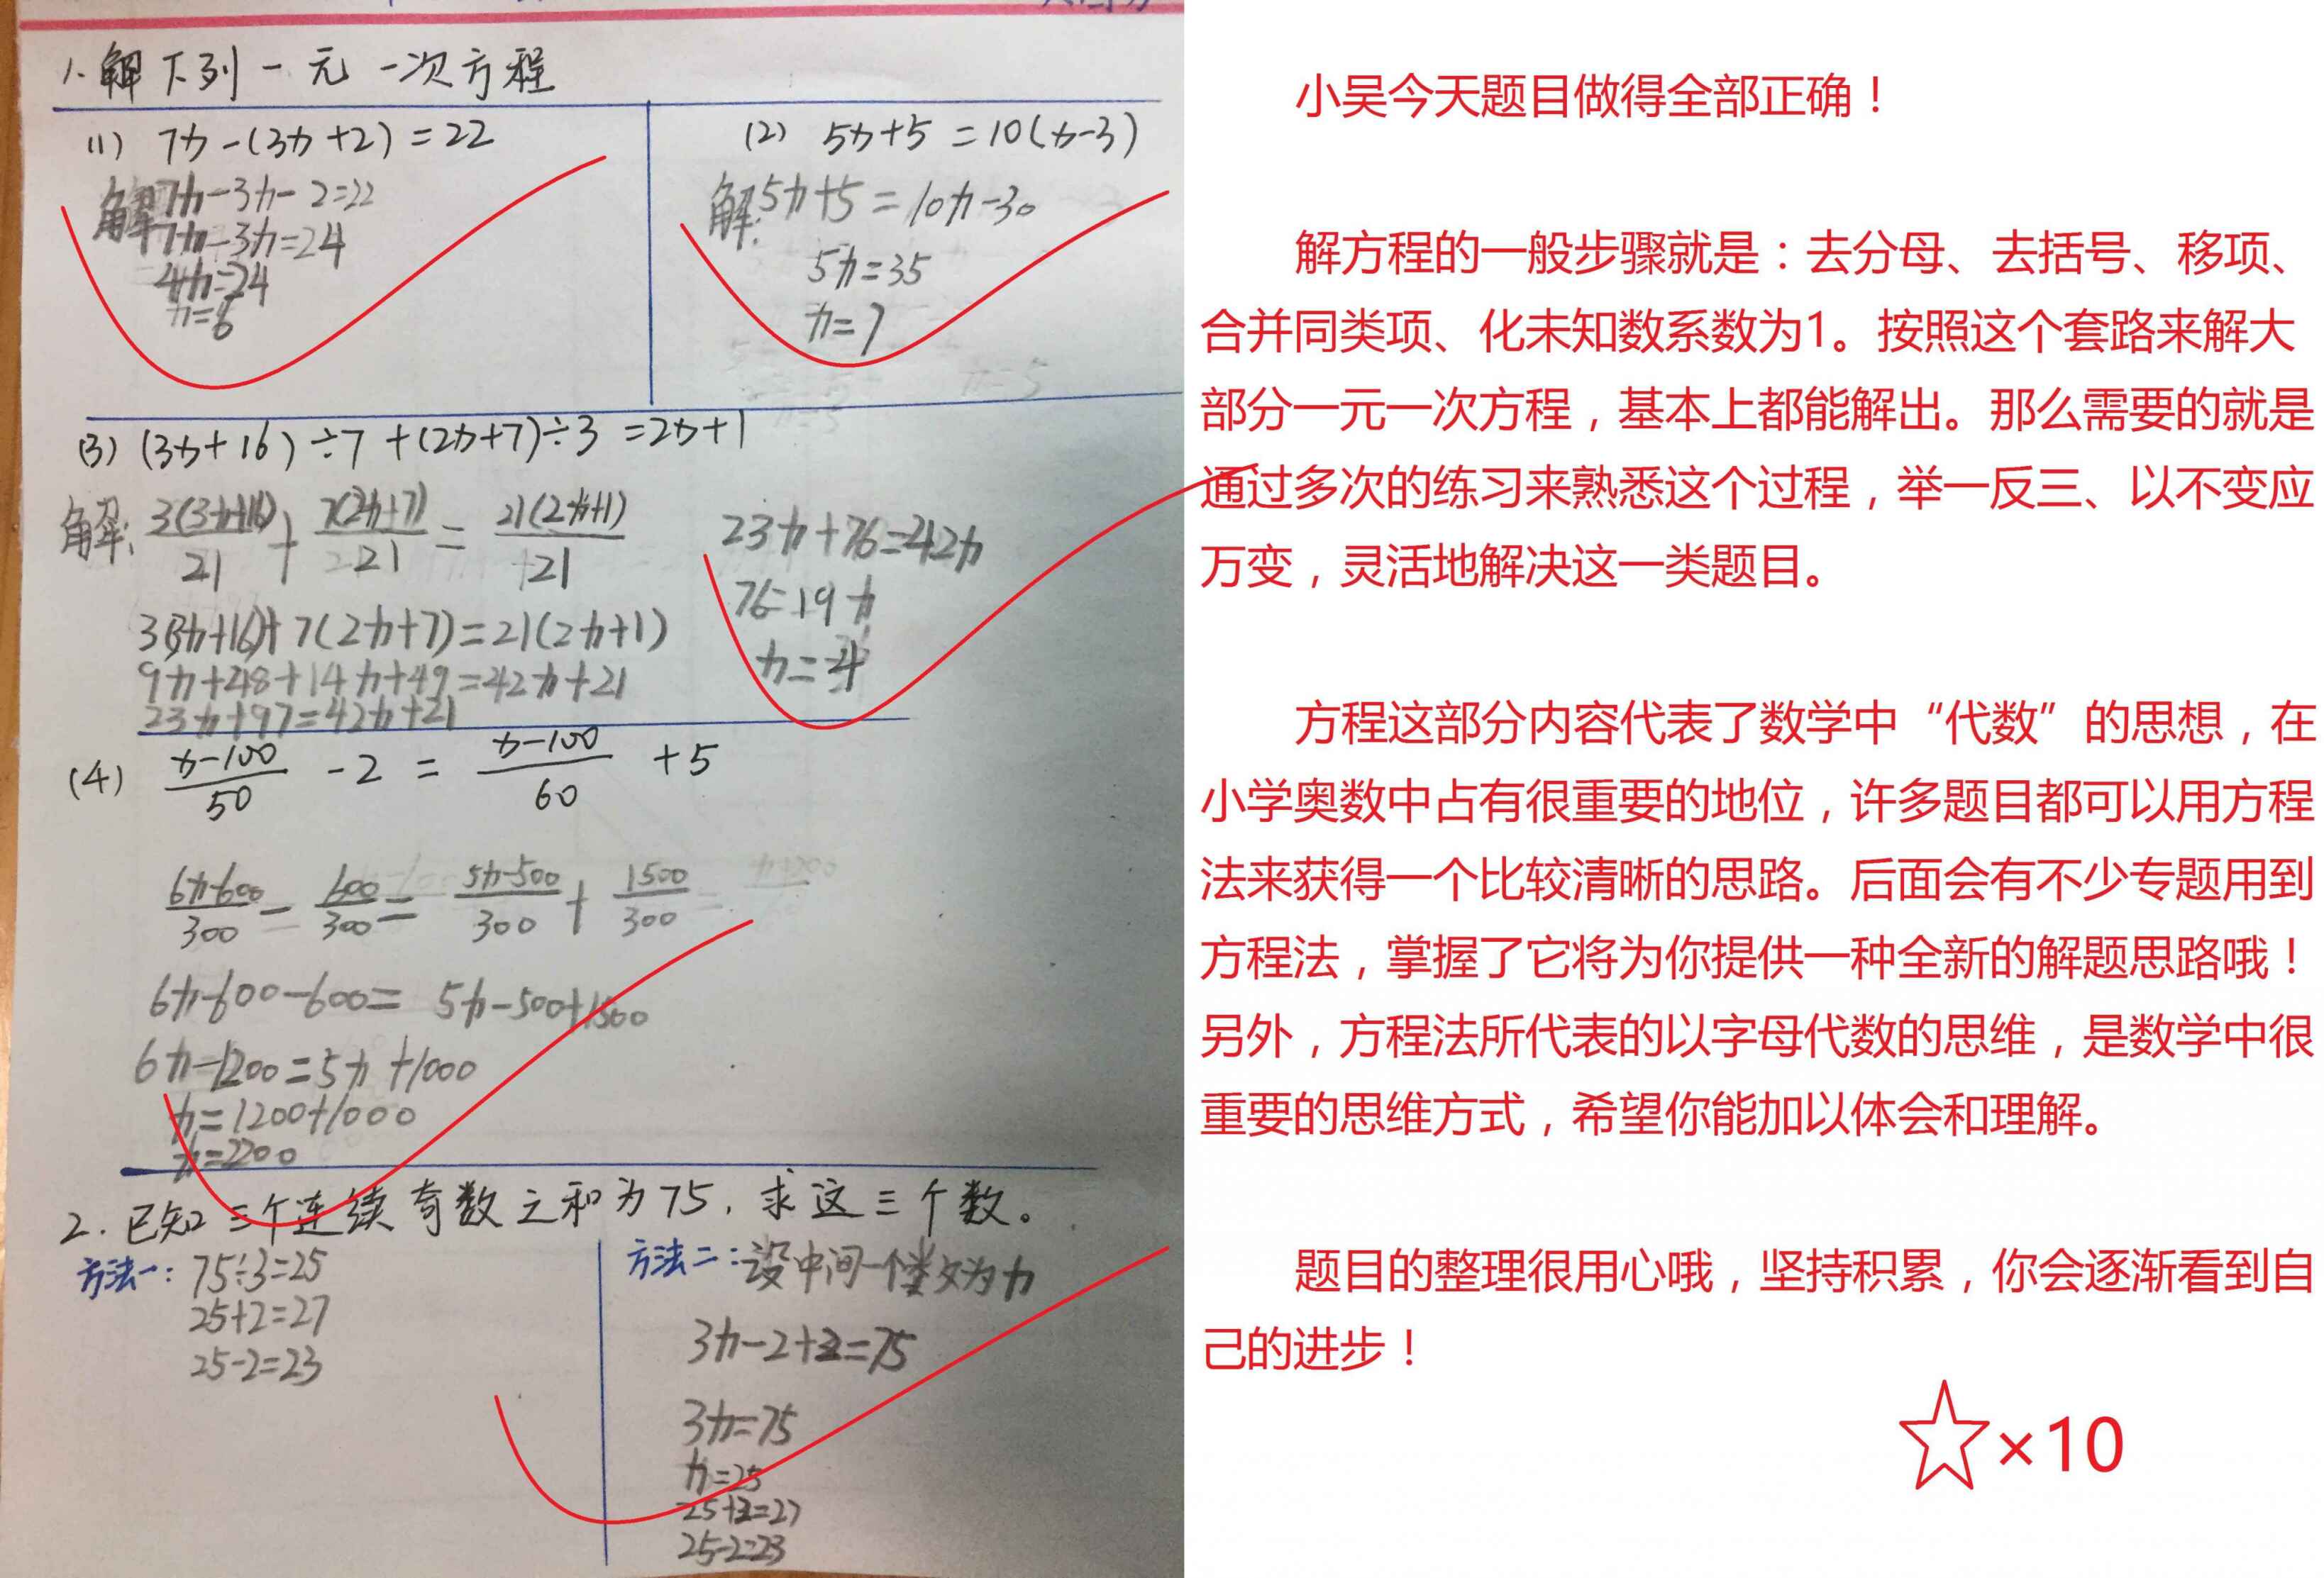 1. 解下列一元一次方程
(1) 7x-(3x+2)=22
解7x-3x-2=22
7x-3x=24
4x=24
x=6
(2) 5x+5=10(x-3)
解:5x+5=10x-30
5x=35
x=7
(3) (3x+16)÷7+(2x+7)÷3=2x+1
解: 3(3x+16)/21 + 7(2x+7)/21 = 21(2x+1)/21
3(3x+16)+7(2x+7)=21(2x+1)
9x+48+14x+49=42x+21
23x+97=42x+21
23x+76=42x
76=19x
x=4
(4) x-100/50 -2 = x-100/60 +5
6x-600/300 - 600/300 = 5x-500/300 + 1500/300
6x-600-600=5x-500+1500
6x-1200=5x+1000
x=1200+1000
x=2200
2. 已知三个连续奇数之和为75,求这三个数。
方法一: 75÷3=25
25+2=27
25-2=23
方法二:设中间一个数为x
3x-2+2=75
3x=75
x=25
25+2=27
25-2=23
小吴今天题目做得全部正确！
解方程的一般步骤就是：去分母、去括号、移项、
合并同类项、化未知数系数为1。按照这个套路来解大
部分一元一次方程，基本上都能解出。那么需要的就是
通过多次的练习来熟悉这个过程，举一反三、以不变应
万变，灵活地解决这一类题目。
方程这部分内容代表了数学中“代数”的思想，在
小学奥数中占有很重要的地位，许多题目都可以用方程
法来获得一个比较清晰的思路。后面会有不少专题用到
方程法，掌握了它将为你提供一种全新的解题思路哦！
另外，方程法所代表的以字母代数的思维，是数学中很
重要的思维方式，希望你能加以体会和理解。
题目的整理很用心哦，坚持积累，你会逐渐看到自
己的进步！
☆×10